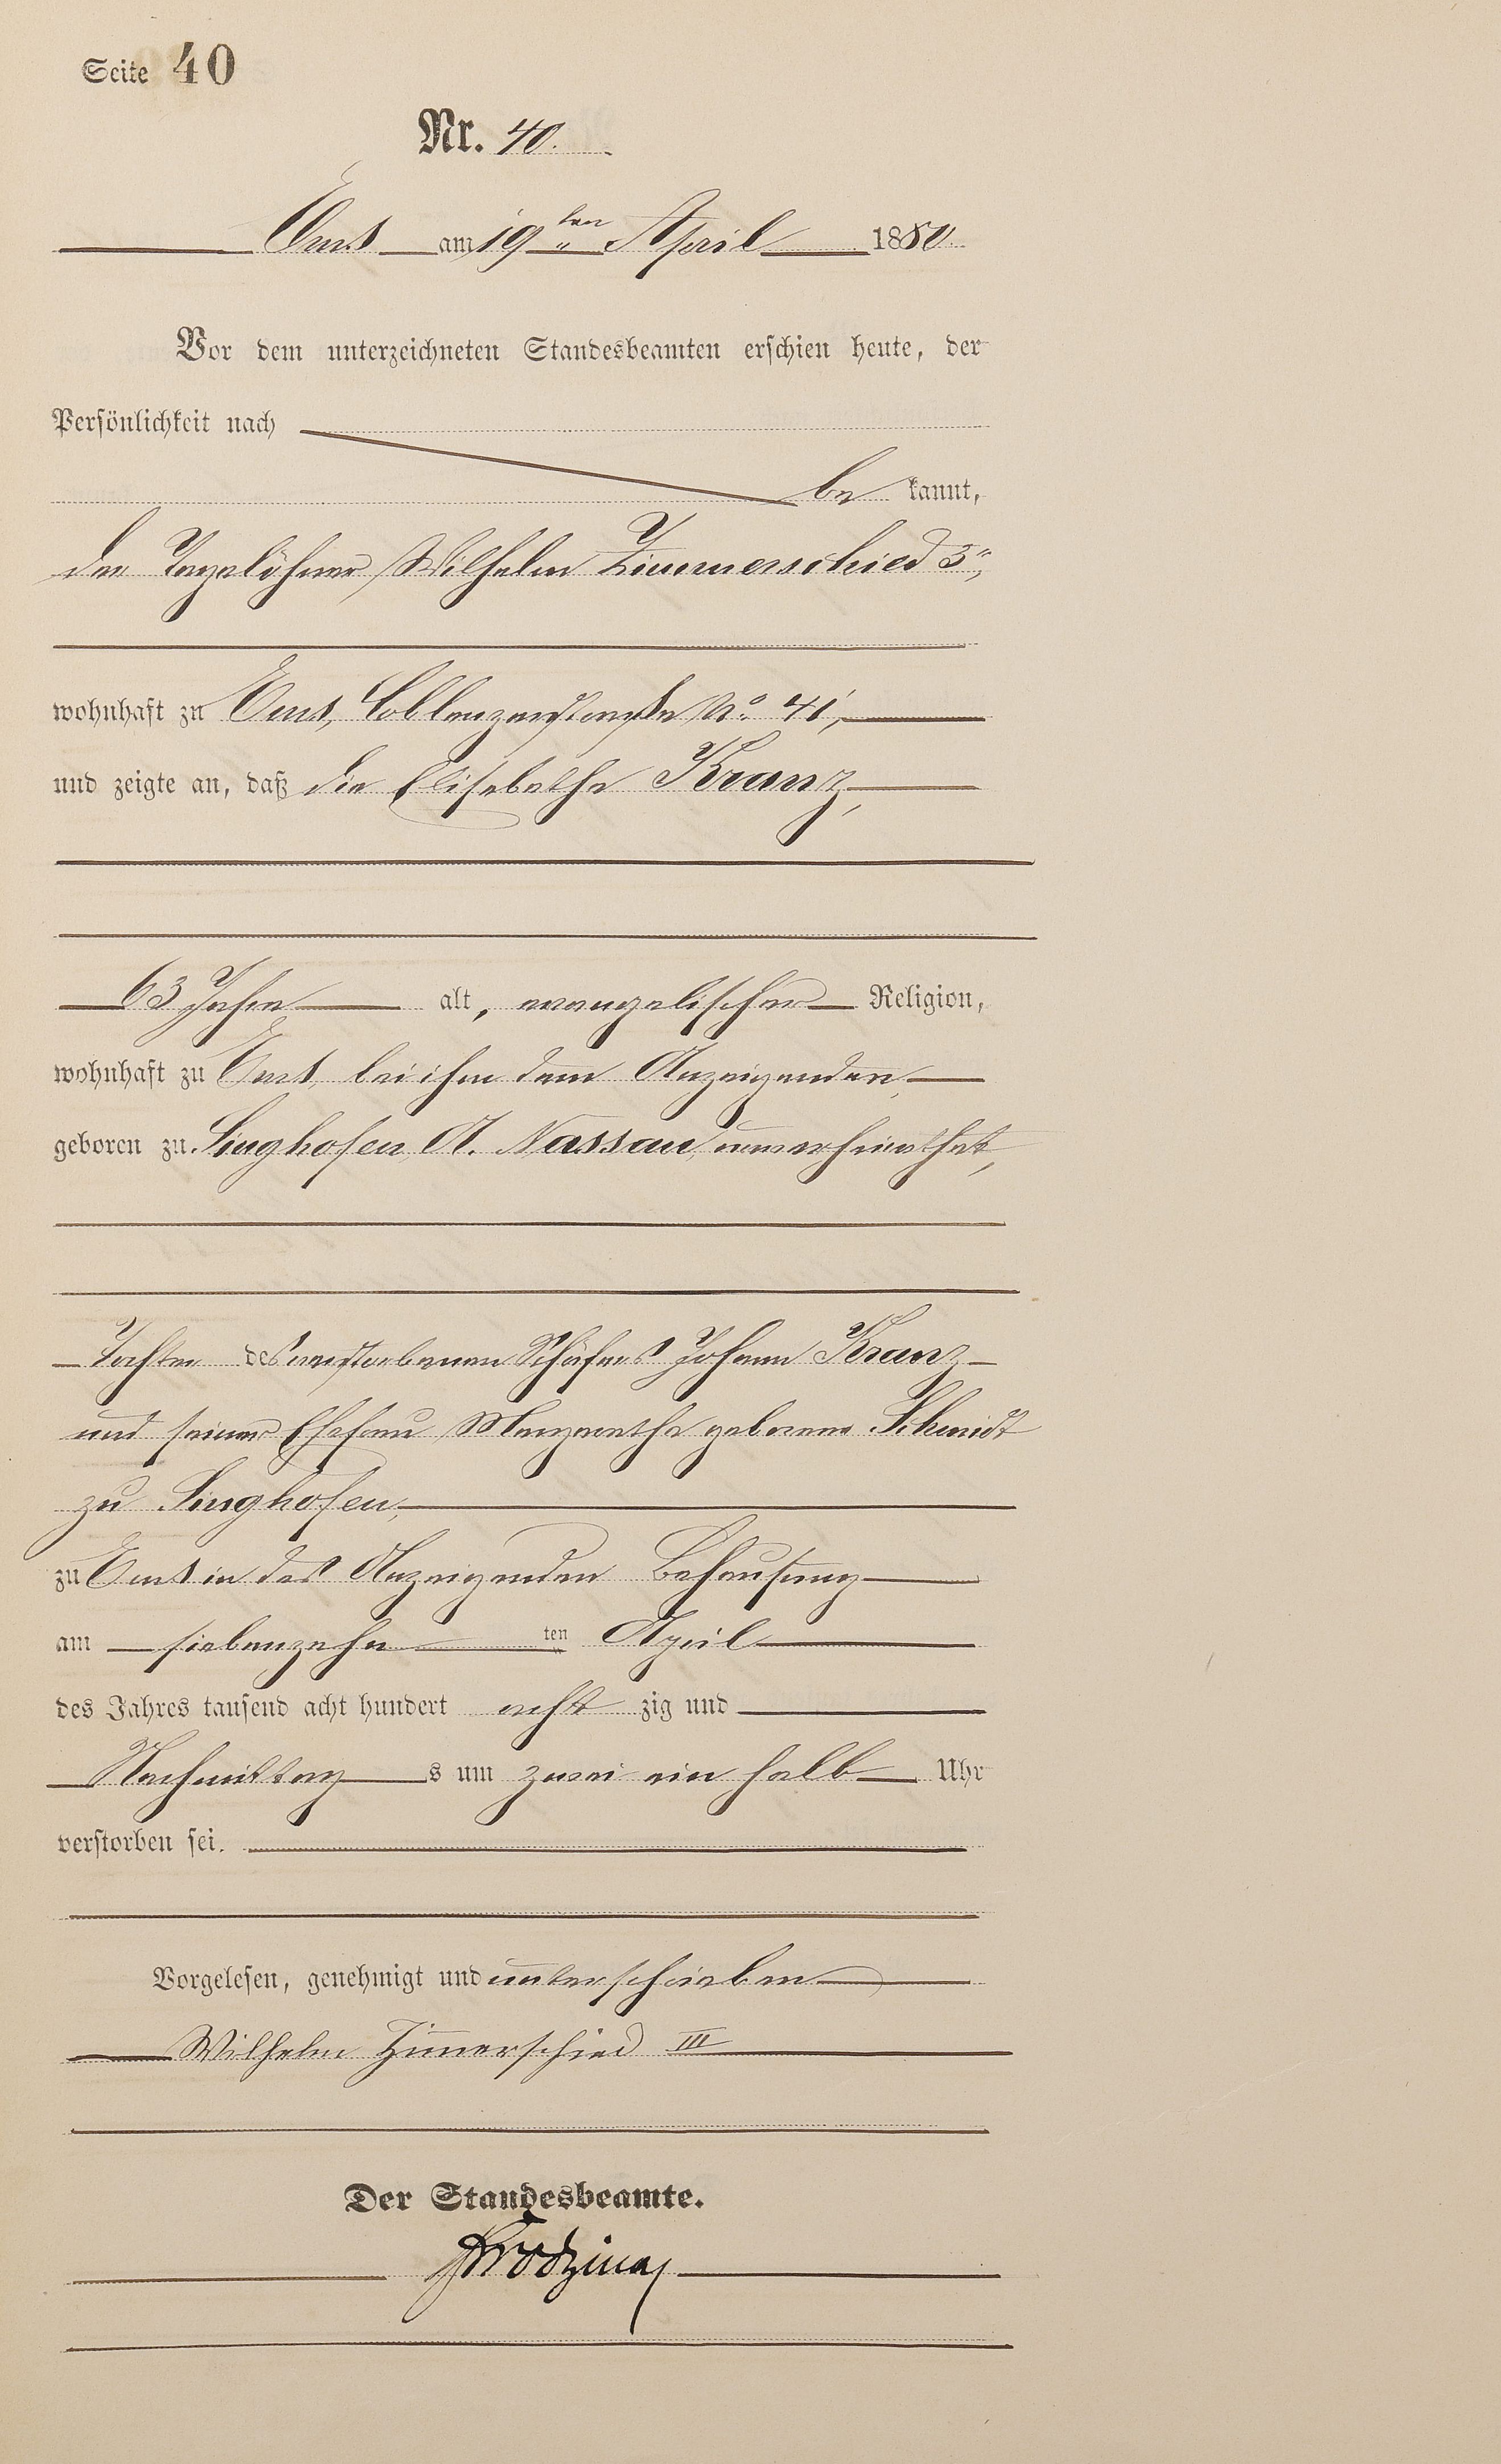 Seite 40
Nr. 40.
Ems am 19ten April 1880.
Vor dem unterzeichneten Standesbeamten erschien heute, der
Persönlichkeit nach
be kannt,
der Tagelöhner Wilhelm Zimmerschied 3r,
wohnhaft zu Ems, Coblenzerstraße No. 41,
und zeigte an, daß die Elisabetha Kranz,
63 Jahre alt, evangelischer Religion,
wohnhaft zu Ems, bei ihm dem Anzeigenden,
geboren zu Singhofen, A. Nassau, unverheirathet,
Tochter des verstorbenen Schäfers Johann Kranz
und seiner Ehefrau Margaretha geborene Schmidt
zu Singhofen,
zu Ems in des Anzeigenden Behausung
am siebenzehn ten April
des Jahres tausend acht hundert acht zig und
Nachmittag s um zwei ein halb Uhr
verstorben sei.
Vorgelesen, genehmigt und unterschrieben
Wilhelm Zimerschied III
Der Standesbeamte.